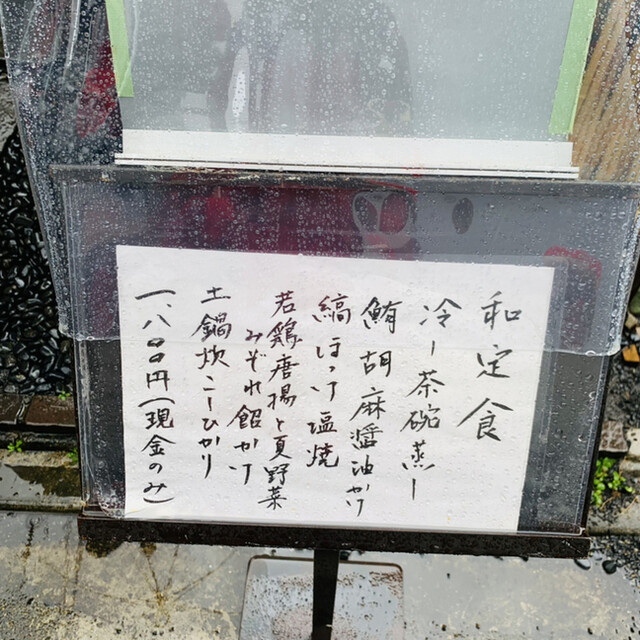 和定食
冷し茶碗蒸し
鮪胡麻醤油かけ
縞ほっけ塩焼
若鶏唐揚と夏野菜
みぞれ餡かけ
土鍋炊こしひかり
一、八〇〇円(現金のみ)